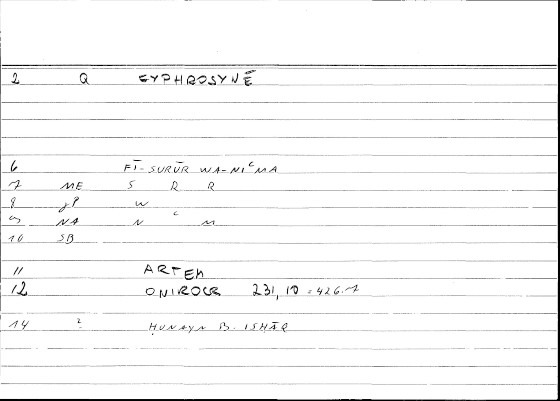 2 Q EYPHROSYNĒ
6 FĪ-SURŪR WA-NIᶜMA
7 ME S R R
8 gP W
9 NA N ᶜ M
10 SB
11 ARTEM
12 ONIROCR 231,10 = 426.7
14 ? ḤUNAYN B. ISḤĀQ